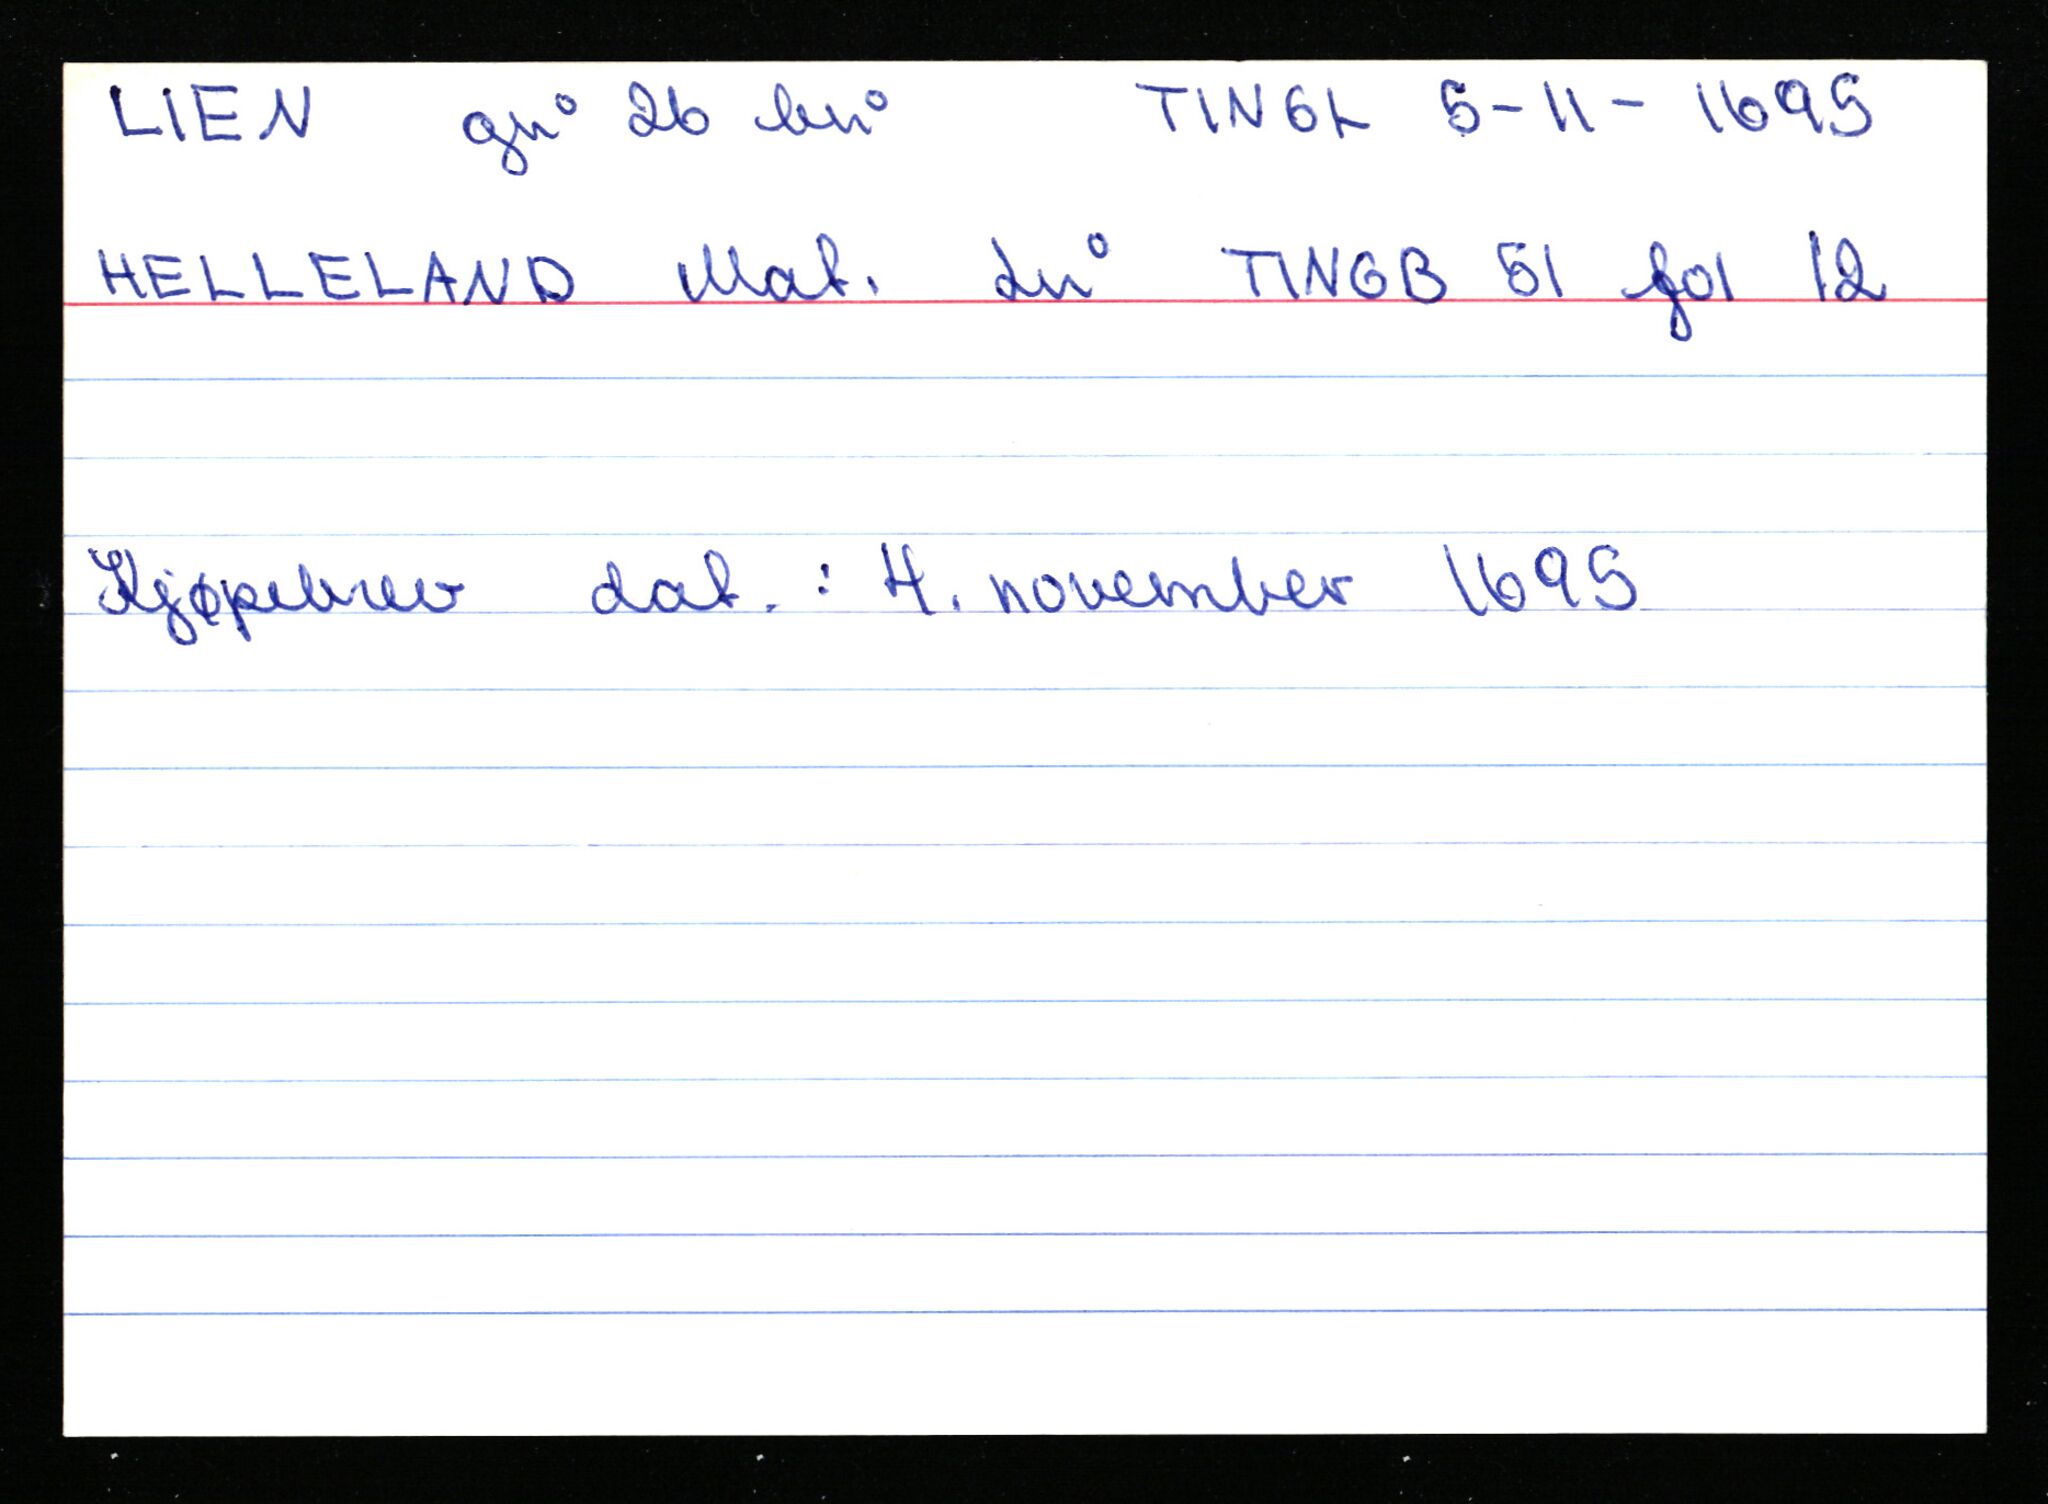 LIEN gn° 26 bn° TINGL 5-11-1695
HELLELAND Mat. Ln° TINGB 51 fol 12
Kjøpebrev dat.: 4. november 1695